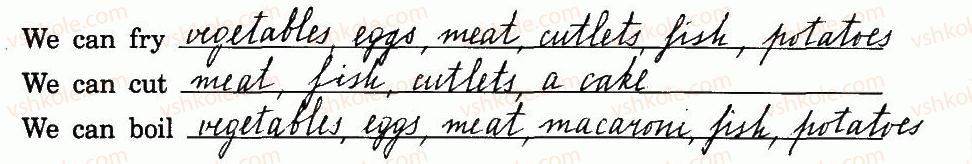 We can fry vegetables, eggs, meat, cutlets, fish, potatoes
We can cut meat, fish, cutlets, a cake
We can boil vegetables, eggs, meat, macaroni, fish, potatoes